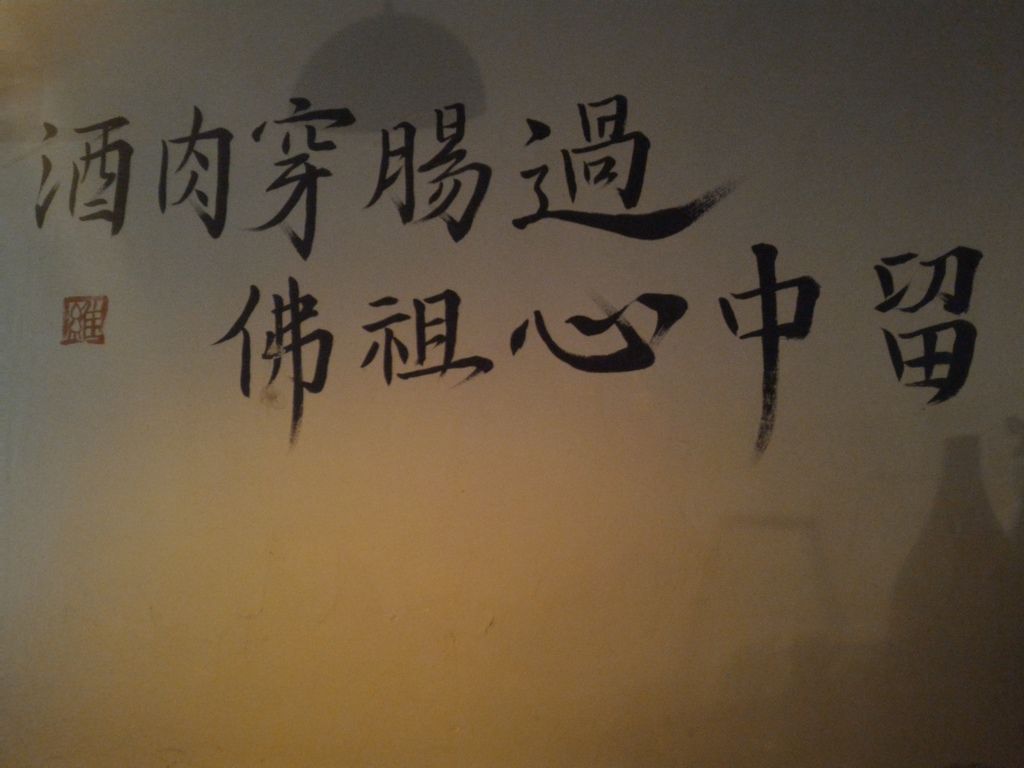 酒肉穿腸過
佛祖心中留